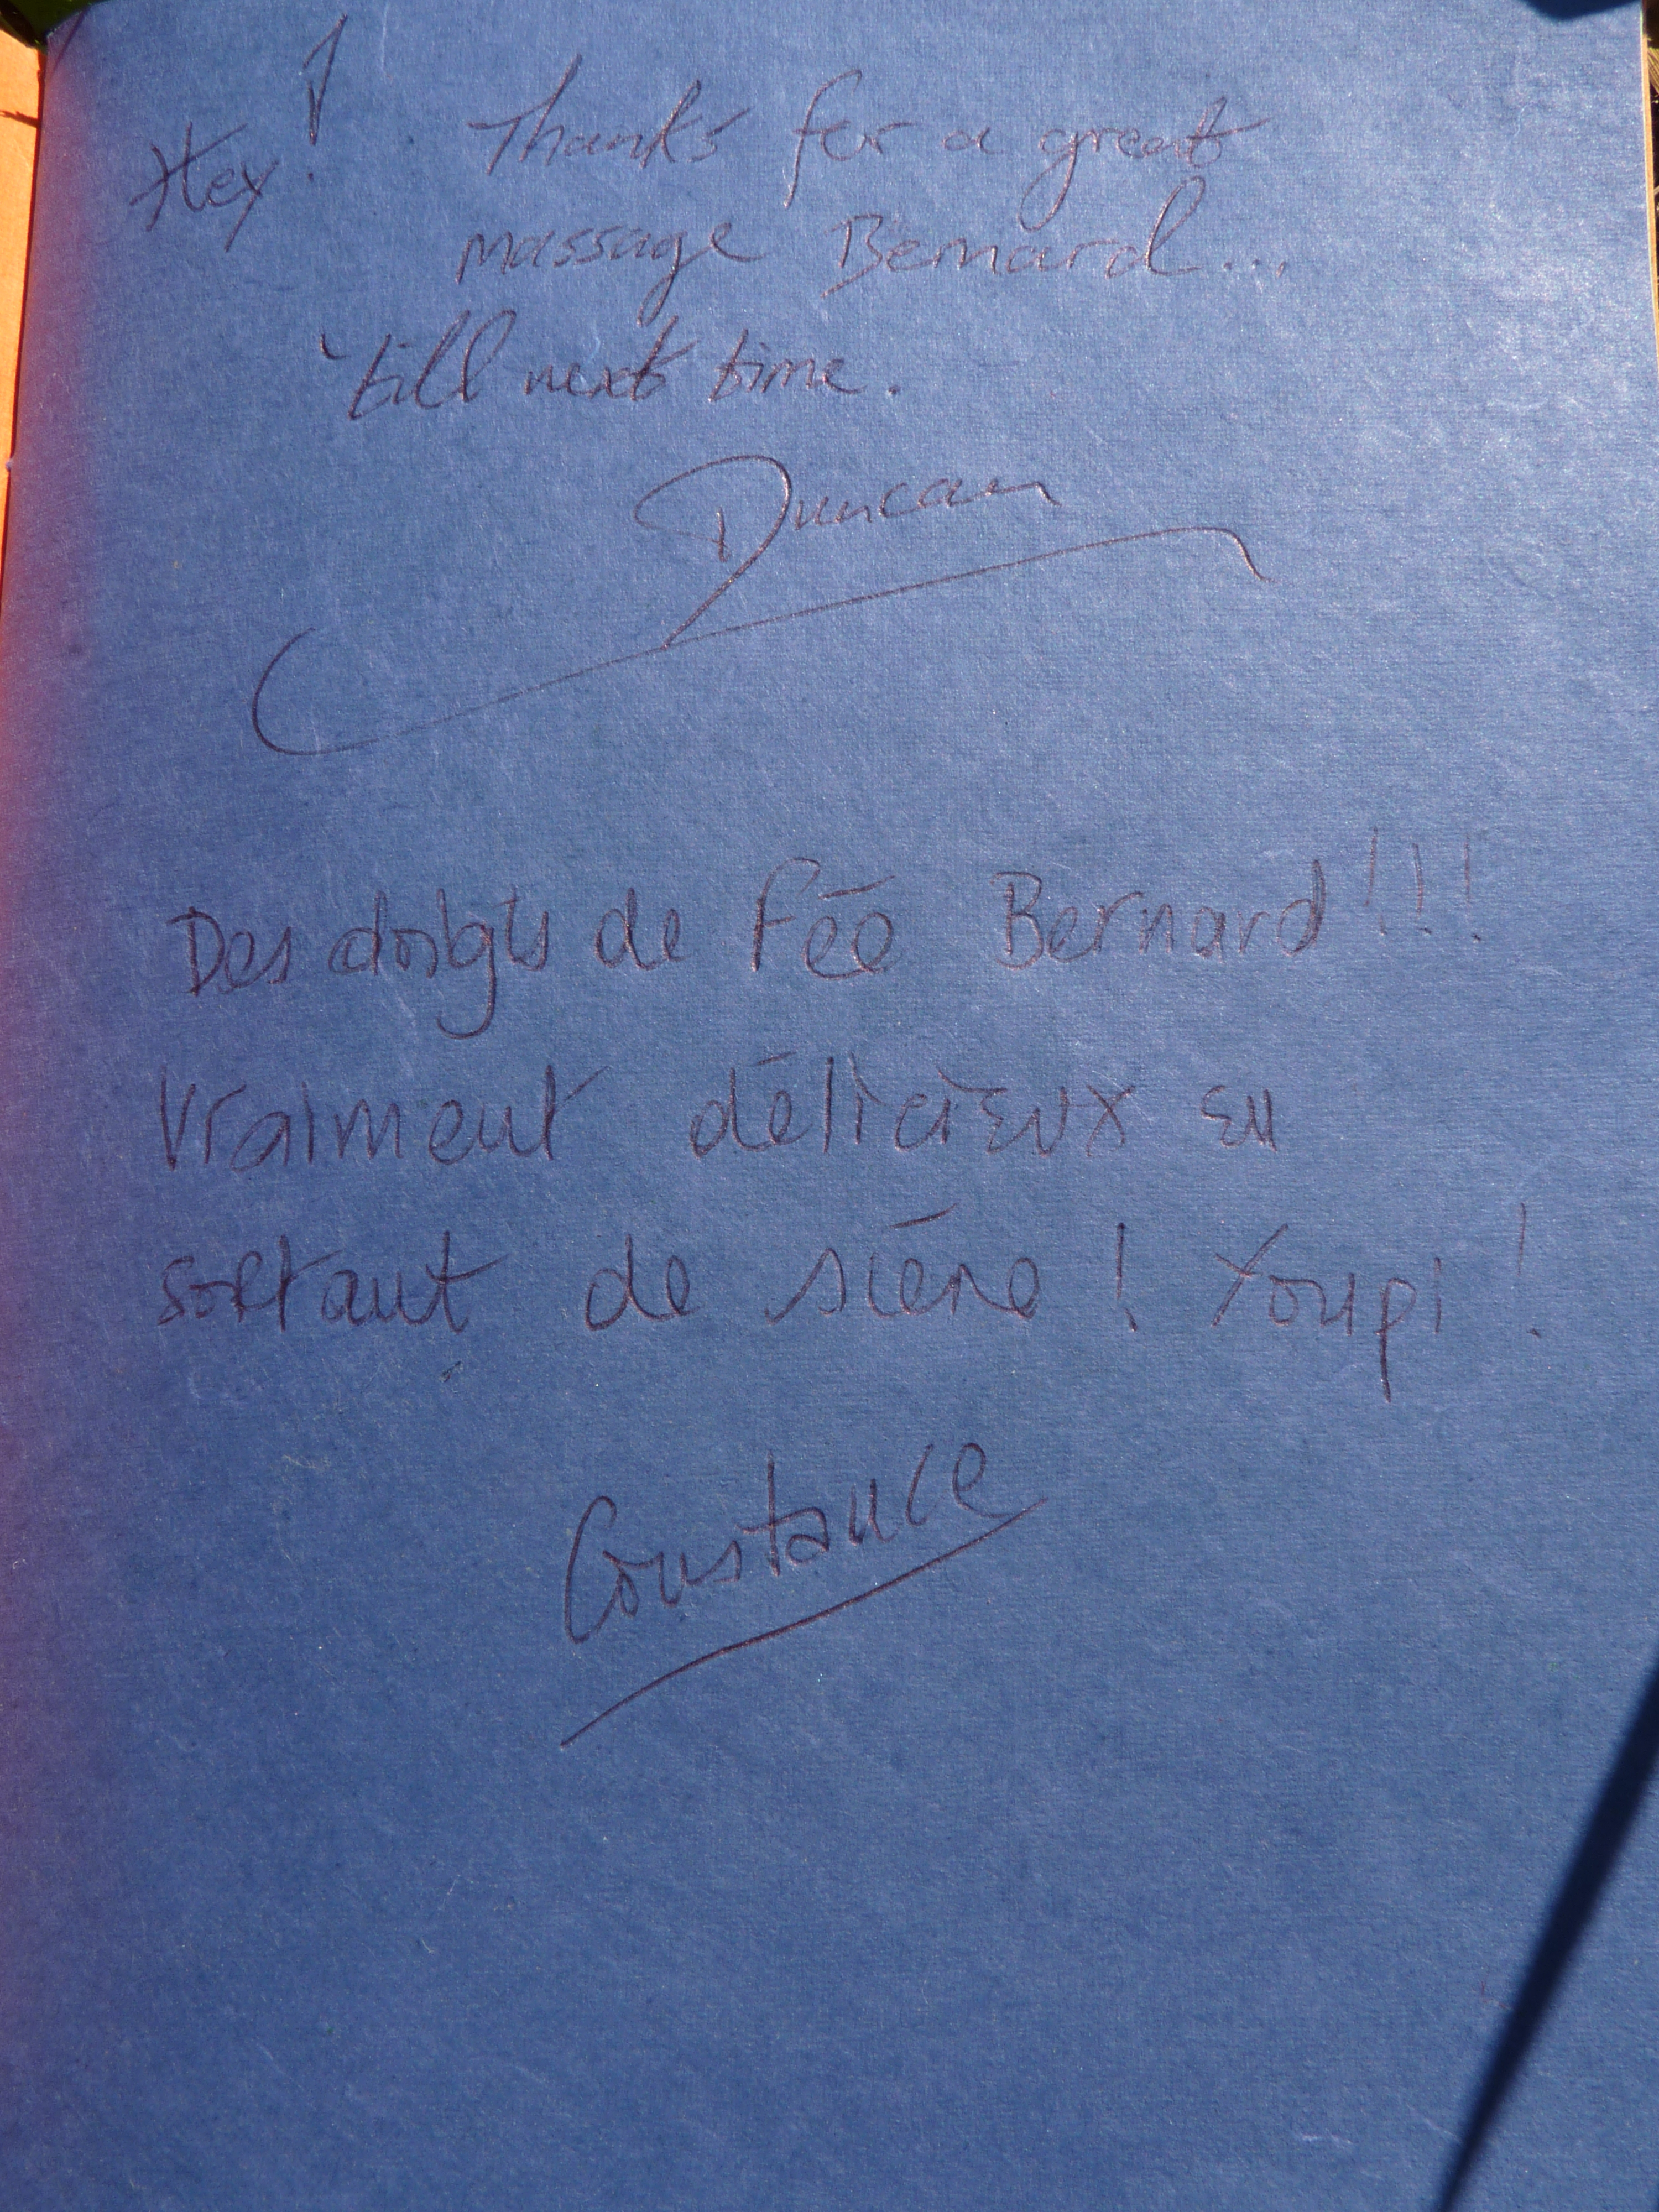 Hey! Thanks for a great
massage Bernard...
'till next time.
Duncan
Des doigts de fée Bernard!!!
Vraiment délicieux en
sortant de scène! Youpi!
Constance